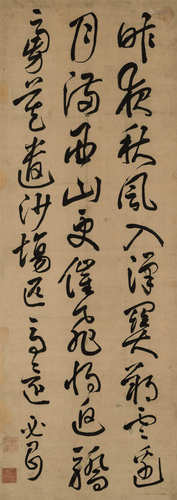 昨夜秋風入漢關朔雲邊
月滿西山更催飛將追驕
虜莫遣沙場匹馬還